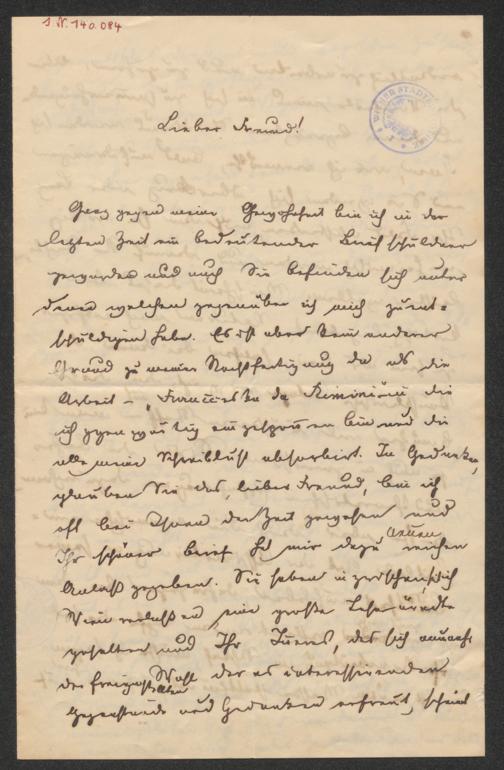 J.N. 140.084
Lieber Freund!
Ganz gegen meine Gewohnheit bin ich in der
letzten Zeit ein bedeutender Briefschuldner
geworden und auch Sie befinden sich unter
denen welchen gegenüber ich mich zu ent=
schuldigen habe. Es ist aber kein anderer
Grund zu meiner Rechtfertigung da als die
Arbeit – "Francesca da Rimini die
ich gegenwärtig eingesponnen bin und die
alle meine Schreiblust absorbirt. In Gedanken,
glauben Sie das, lieber Freund, bin ich
oft bei Ihnen die Zeit gewesen und
Ihr schöner Brief hat mir dazu reichen
Anlaß gegeben. Sie haben inzwischen
Wien verlassen eine große
gehalten und Ihr das sich
der Wahl der es interessirenden
Gegenstände und Gedanken erfreut, scheint